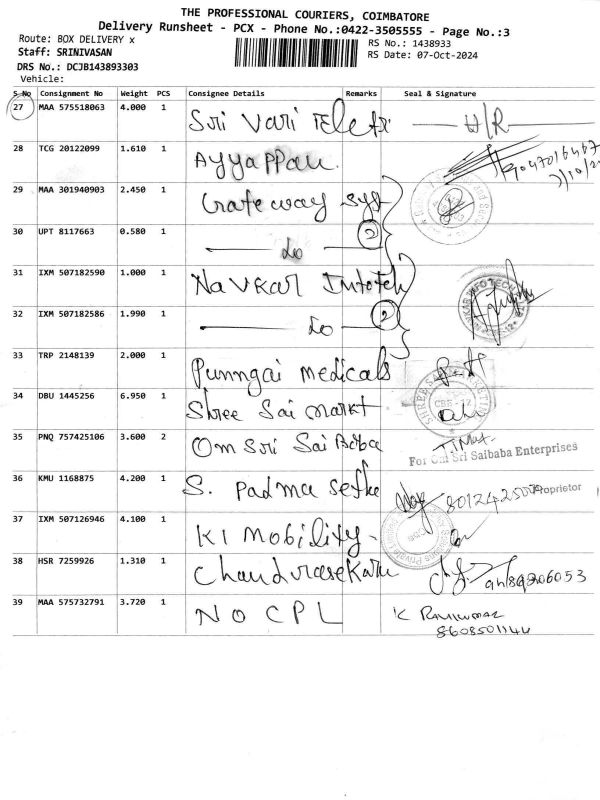 THE PROFESSIONAL COURIERS, COIMBATORE
Delivery Runsheet - PCX - Phone No.:0422-3505555 - Page No.:3
Route: BOX DELIVERY x
RS No.: 1438933
Staff: SRINIVASAN
RS Date: 07-Oct-2024
DRS No.: DCJB143893303
Vehicle:
S No Consignment No Weight PCS Consignee Details Remarks Seal & Signature
27 MAA 575518063 4.000 1 Sri Vari H/R
28 TCG 20122099 1.610 1 Ayyappan.
29 MAA 301940903 2.450 1 Gateway Sys
30 UPT 8117663 0.580 1 Do 2
31 IXM 507182590 1.000 1 Navkar Infotch
32 IXM 507182586 1.990 1 Do 2
33 TRP 2148139 2.000 1 Punngai medicals
34 DBU 1445256 6.950 1 Shree Sai markt
35 PNQ 757425106 3.600 2 Om Sri Sai Baba
For Om Sri Saibaba Enterprises
36 KMU 1168875 4.200 1 S. Padma Proprietor
37 IXM 507126946 4.100 1 KI Mobility
38 HSR 7259926 1.310 1 Chandrasekaru
39 MAA 575732791 3.720 1 NO CPL K Ramkumar
8608501144